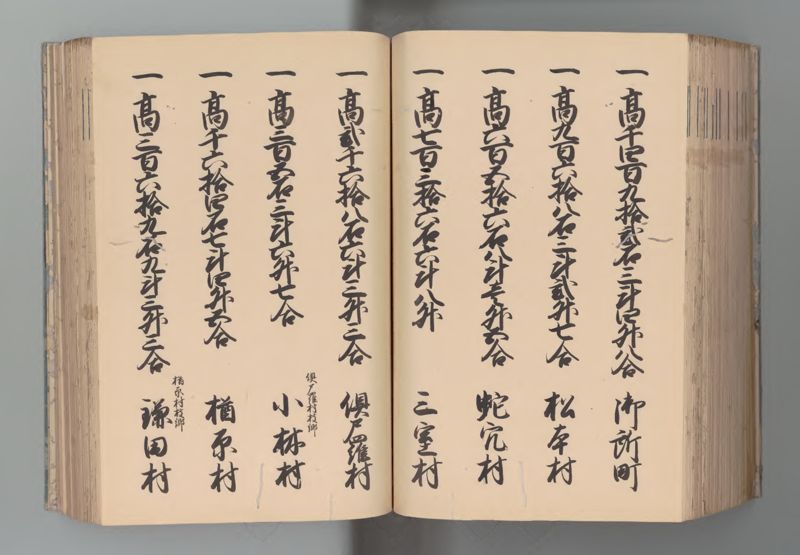 一高千四百九拾弐石三斗四升八合 御所町
一高九百六拾八石三斗弐升七合 松本村
一高六百五拾六石八斗壱升五合 蛇穴村
一高七百三拾六石六斗八升 三室村
一高弐千六拾八石六斗三升三合 倶尸羅村
倶尸羅村枝郷
一高三百五石三斗六升七合 小林村
一高千六拾四石七斗四升五合 楢原村
楢原村枝郷
一高三百六拾九石九斗三升三合 鎌田村